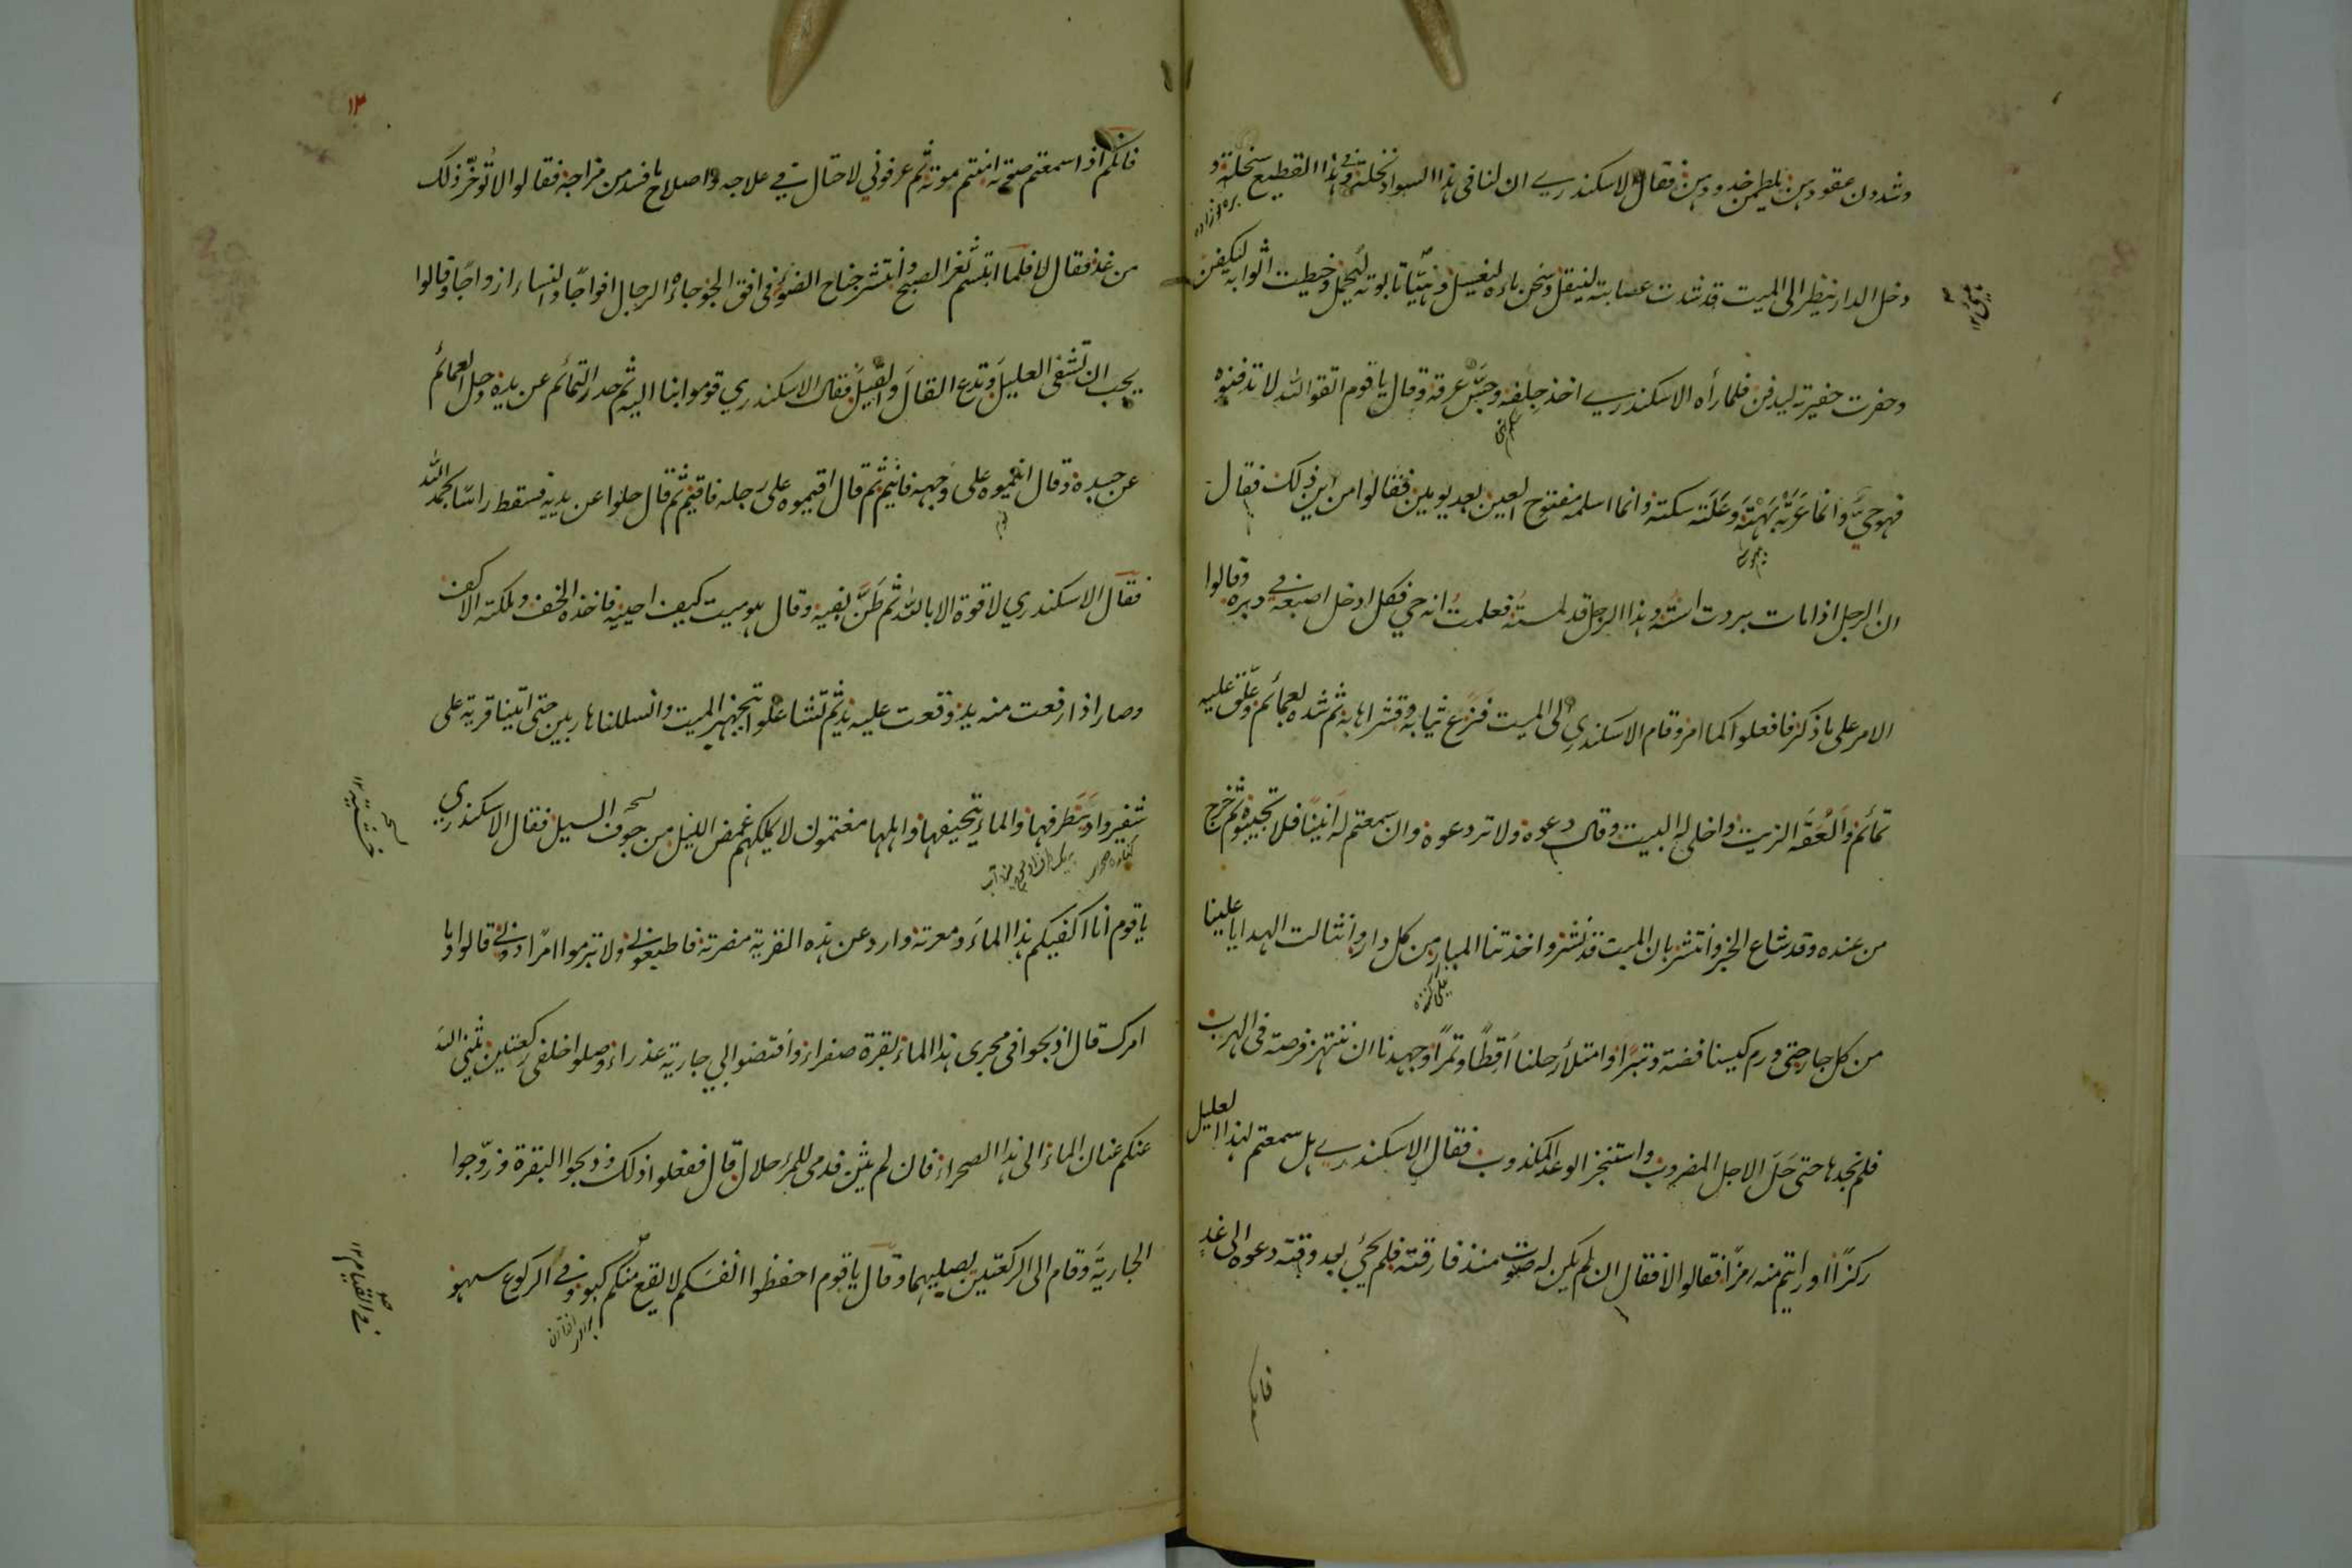 وشددن عقودهن يلطمن خدودهن فقال الاسكندري ان لنا فى هذا السواد نخلة وفي هذا القطيع سخلة و
دخل الدار ينظر الى الميت قد شدت عصابته لينقل وسخن ماءه ليغسل وهيّأ تابوته ليحمل وخيطت اثوابه ليكفن
وحفرت حفيرته ليدفن فلما رأه الاسكندري اخذ حلقه وجسّ عرقه وقال يا قوم اتقوا الله لا تدفنوه
فهو حيّ وانما عَرَتْه بَهتَة وعَلَته سكتة وانما اسلمه مفتوح العين بعد يومين فقالوا من اين ذلك فقال
ان الرجل اذا مات بردت استُه وهذا الرجل قد لمسته فعلمتُ انه حي فكل ادخل اصبعه في دبره وقالوا
الامر على ما ذكر فافعلوا كما امر وقام الاسكندري الى الميت فنزع ثيابه وقشر اهابه ثم شد له العمائم وعلّق عليه
تمائم واَلعَقَه الزيت واخلى له البيت وقال دعوه ولا تردعوه وان سمعتم له انينًا فلا تجيبوه ثم خرج
من عنده وقد شاع الخبر وانتشر بان الميت قد نشر واخذتنا المبار من كل دار وانثالت الهدايا علينا
من كل جار حتى ورم كيسنا فضة وتبرًا وامتلأ رحلنا اَقِطًا وتمرًا وجهدنا ان ننتهز فرصة فى الهرب
فلم نجدها حتى حَلَ الاجل المضروب واستنجز الوعد المكذوب فقال الاسكندري هل سمعتم لهذا العليل
ركزًا او رايتم منه رمزًا فقالوا لا فقال ان لم يكن له صوت منذ فارقته فلم يجئ بعد وقته دعوه الى غدٍ
فانكم
١٣
فانكم اذا سمعتم صوته امنتم موته ثم عرفوني لاحتال في علاجه واصلاح ما فسد من مزاجه فقالوا لا تُوخّر ذلك
من غد فقال لا فلما ابتسم ثغر الصبح وانتشر جناح الضوء فى افق الجو جاءه الرجال افواجًا والنساء ازواجًا وقالوا
يجب ان تشفى العليل وتدع القال والقيل فقال الاسكندري قوموا بنا اليه ثم حدر التمائم عن يده وحل العمائم
عن جسده وقال انيموه على وجهه فانيم ثم قال اقيموه على رجله فاقيم ثم قال خلوا عن يديه فسقط راسًا بحمد الله
فقال الاسكندري لا قوة الا بالله ثم طَنَّ بفيه وقال هو ميت كيف احييه فاخذه الخف وملكته الاكف
وصار اذا رفعت منه يد وقعت عليه يد ثم تشاغلوا بتجهيز الميت وانسللنا هاربين حتى اتينا قرية على
شفير واد يتطرفها والماء يتحيفها واهلها مغتمون لا يملكهم غمض الليل من خوف السيل فقال الاسكندري
كناره صحرا
يا قوم انا اكفيكم هذا الماءَ ومعرته وارد عن هذه القرية مضرته فاطيعوني ولا تبرموا امرًا دوني قالوا وما
امرك قال اذبحوا فى مجرى هذا الماء بقرة صفراء واَقتضوا لي جارية عذراء وصلوا خلفى ركعتين يثني الله
عنكم عنان الماء الى هذا الصحراء فان لم يثن فدمى للمرء حلال قال ففعلوا ذلك وذبحوا البقرة وزوّجوا
الجاريةَ وقام الى الركعتين يصليهما وقال يا قوم احفظوا انفسَكم لا يقع منكم كبو وفي الركوع سهو
في القيام